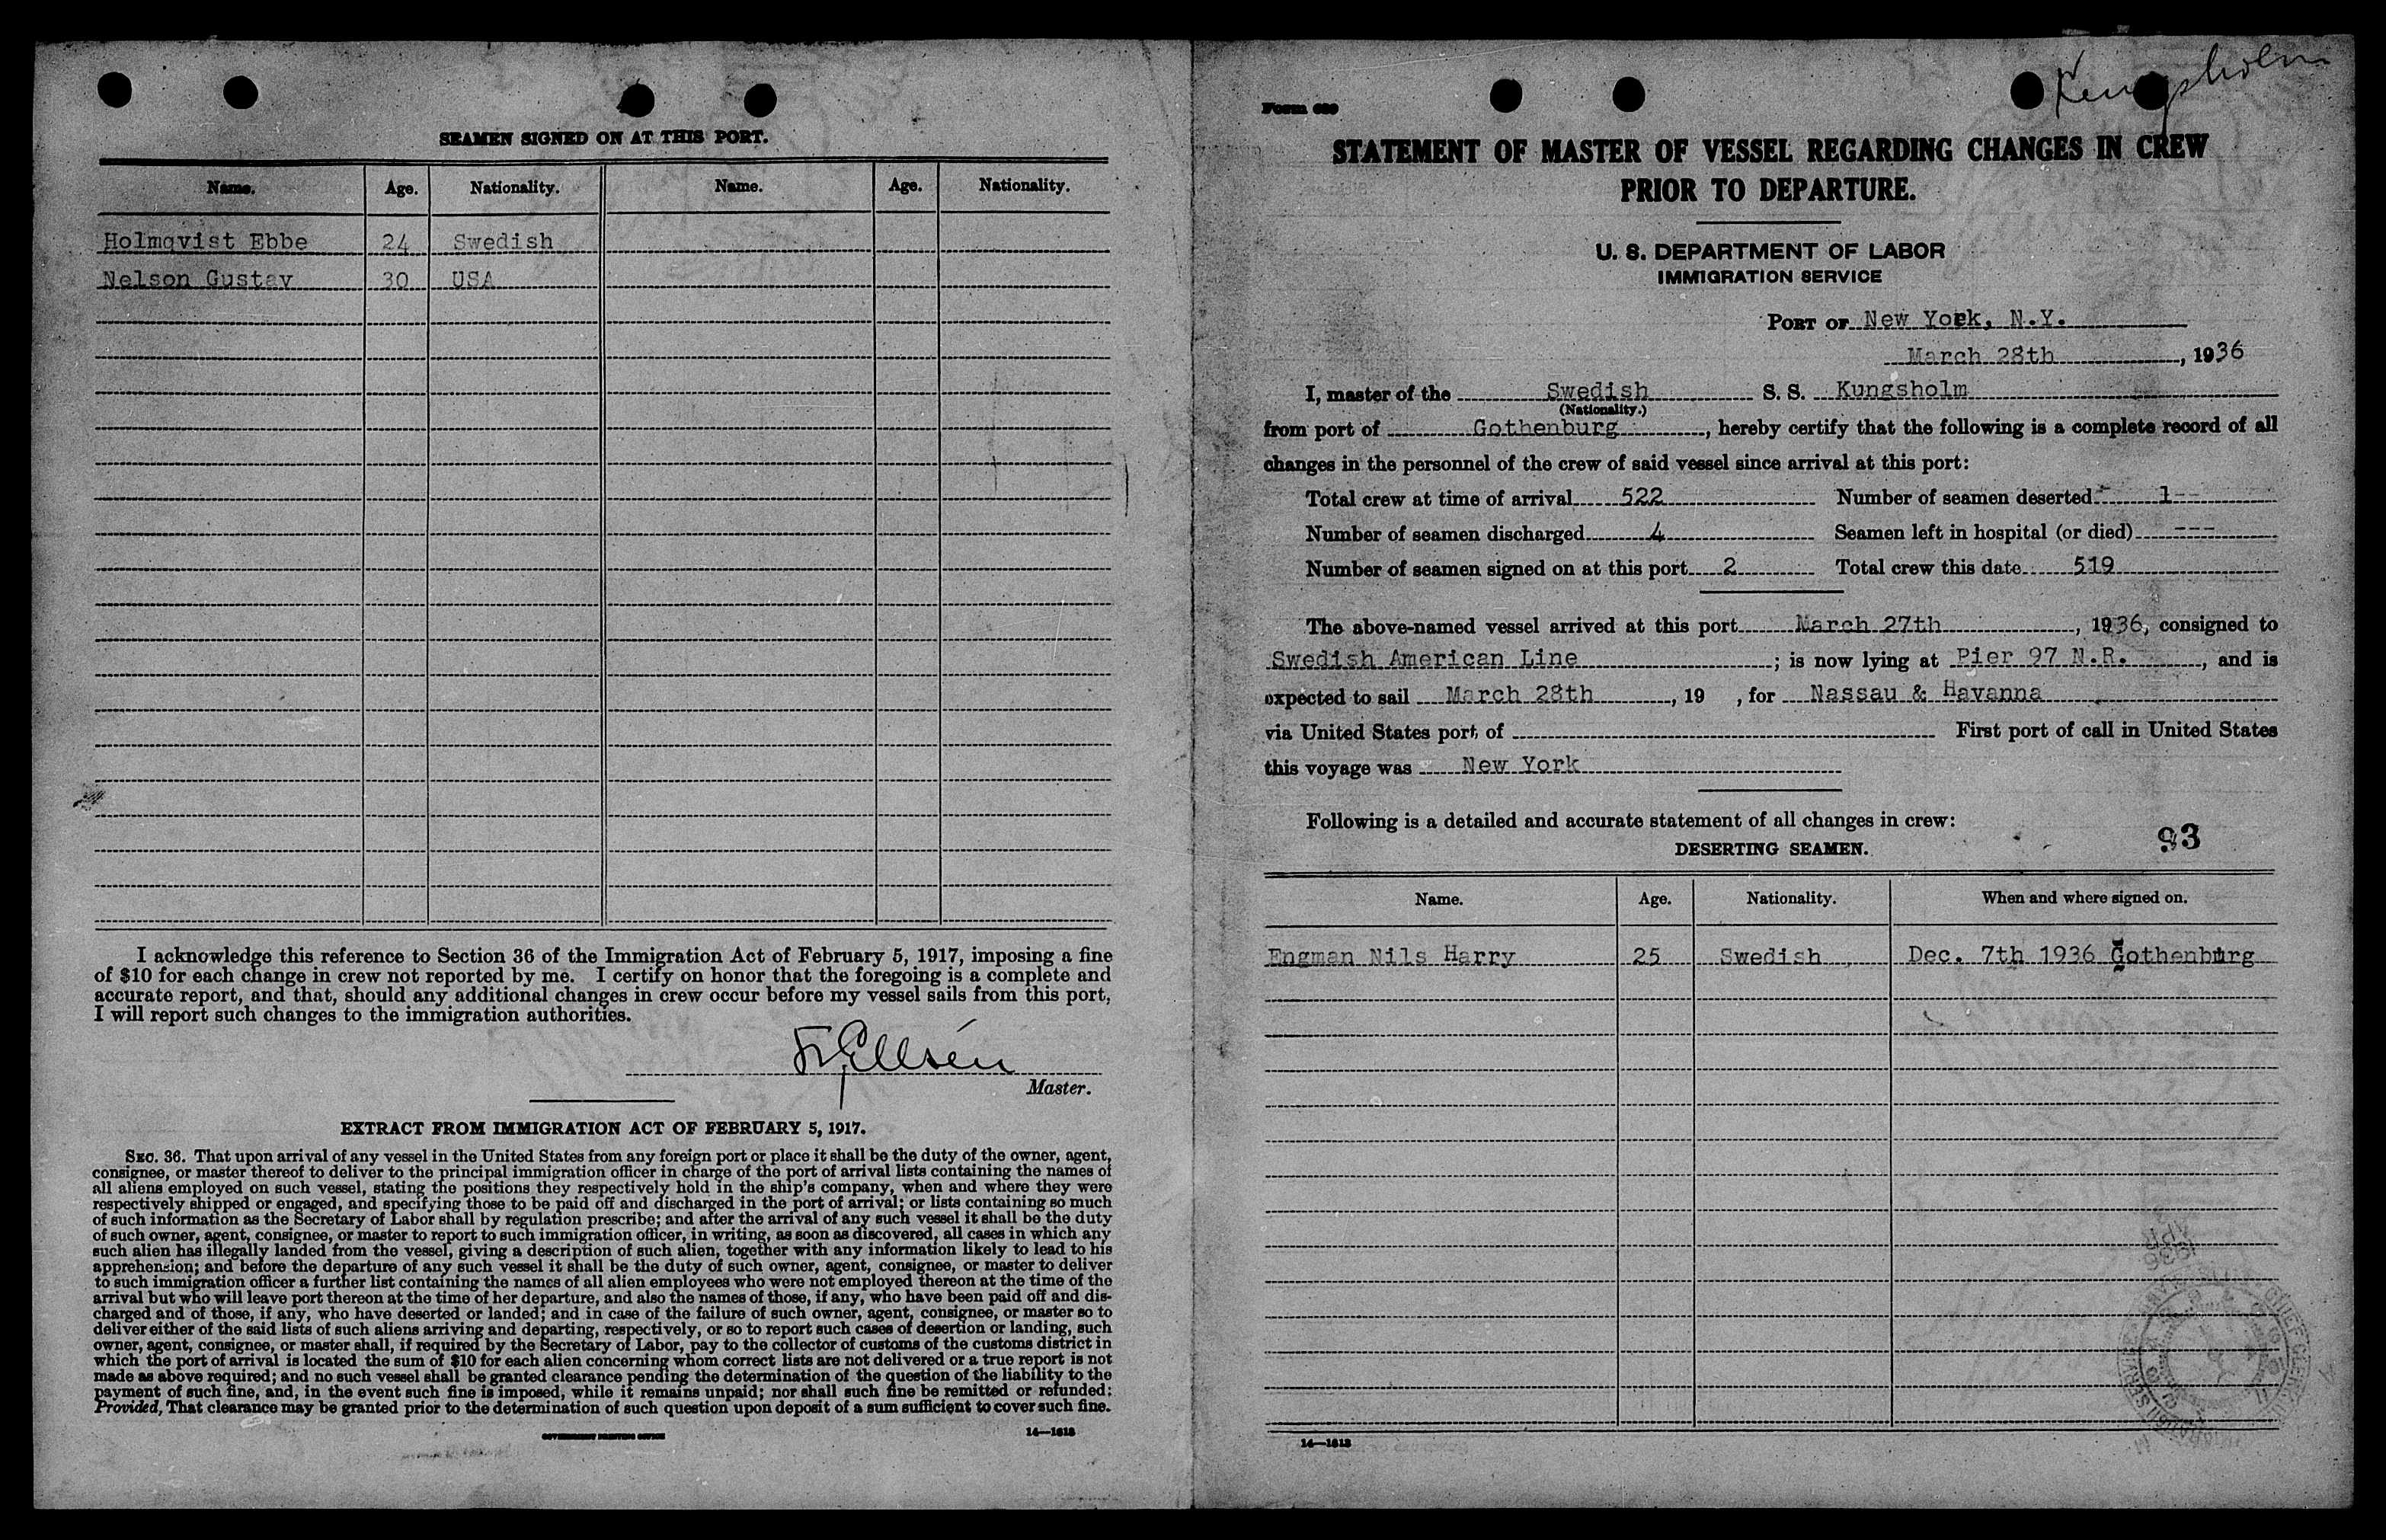 SEAMEN SIGNED ON AT THIS PORT.
Name. Age. Nationality. Name. Age. Nationality.
Holmqvist Ebbe 24 Swedish
Nelson Gustav 30 USA
I acknowledge this reference to Section 36 of the Immigration Act of February 5, 1917, imposing a fine
of $10 for each change in crew not reported by me. I certify on honor that the foregoing is a complete and
accurate report, and that, should any additional changes in crew occur before my vessel sails from this port,
I will report such changes to the immigration authorities.
Master.
EXTRACT FROM IMMIGRATION ACT OF FEBRUARY 5, 1917.
SEC. 36. That upon arrival of any vessel in the United States from any foreign port or place it shall be the duty of the owner, agent,
consignee, or master thereof to deliver to the principal immigration officer in charge of the port of arrival lists containing the names of
all aliens employed on such vessel, stating the positions they respectively hold in the ship's company, when and where they were
respectively shipped or engaged, and specifying those to be paid off and discharged in the port of arrival; or lists containing so much
of such information as the Secretary of Labor shall by regulation prescribe; and after the arrival of any such vessel it shall be the duty
of such owner, agent, consignee, or master to report to such immigration officer, in writing, as soon as discovered, all cases in which any
such alien has illegally landed from the vessel, giving a description of such alien, together with any information likely to lead to his
apprehension; and before the departure of any such vessel it shall be the duty of such owner, agent, consignee, or master to deliver
to such immigration officer a further list containing the names of all alien employees who were not employed thereon at the time of the
arrival but who will leave port thereon at the time of her departure, and also the names of those, if any, who have been paid off and dis-
charged and of those, if any, who have deserted or landed; and in case of the failure of such owner, agent, consignee, or master so to
deliver either of the said lists of such aliens arriving and departing, respectively, or so to report such cases of desertion or landing, such
owner, agent, consignee, or master shall, if required by the Secretary of Labor, pay to the collector of customs of the customs district in
which the port of arrival is located the sum of $10 for each alien concerning whom correct lists are not delivered or a true report is not
made as above required; and no such vessel shall be granted clearance pending the determination of the question of the liability to the
payment of such fine, and, in the event such fine is imposed, while it remains unpaid; nor shall such fine be remitted or refunded:
Provided, That clearance may be granted prior to the determination of such question upon deposit of a sum sufficient to cover such fine.
GOVERNMENT PRINTING OFFICE 14—1613
Kungsholm
Form 689
STATEMENT OF MASTER OF VESSEL REGARDING CHANGES IN CREW
PRIOR TO DEPARTURE.
U. S. DEPARTMENT OF LABOR
IMMIGRATION SERVICE
PORT OF New York, N.Y.
March 28th, 1936
I, master of the Swedish S. S. Kungsholm
(Nationality.)
from port of Gothenburg, hereby certify that the following is a complete record of all
changes in the personnel of the crew of said vessel since arrival at this port:
Total crew at time of arrival 522 Number of seamen deserted 1
Number of seamen discharged 4 Seamen left in hospital (or died) ---
Number of seamen signed on at this port 2 Total crew this date 519
The above-named vessel arrived at this port March 27th, 1936, consigned to
Swedish American Line; is now lying at Pier 97 N.R., and is
expected to sail March 28th, 19 , for Nassau & Havanna
via United States port of First port of call in United States
this voyage was New York
Following is a detailed and accurate statement of all changes in crew:
93
DESERTING SEAMEN.
Name. Age. Nationality. When and where signed on.
Engman Nils Harry 25 Swedish Dec. 7th 1936 Gothenburg
14—1613